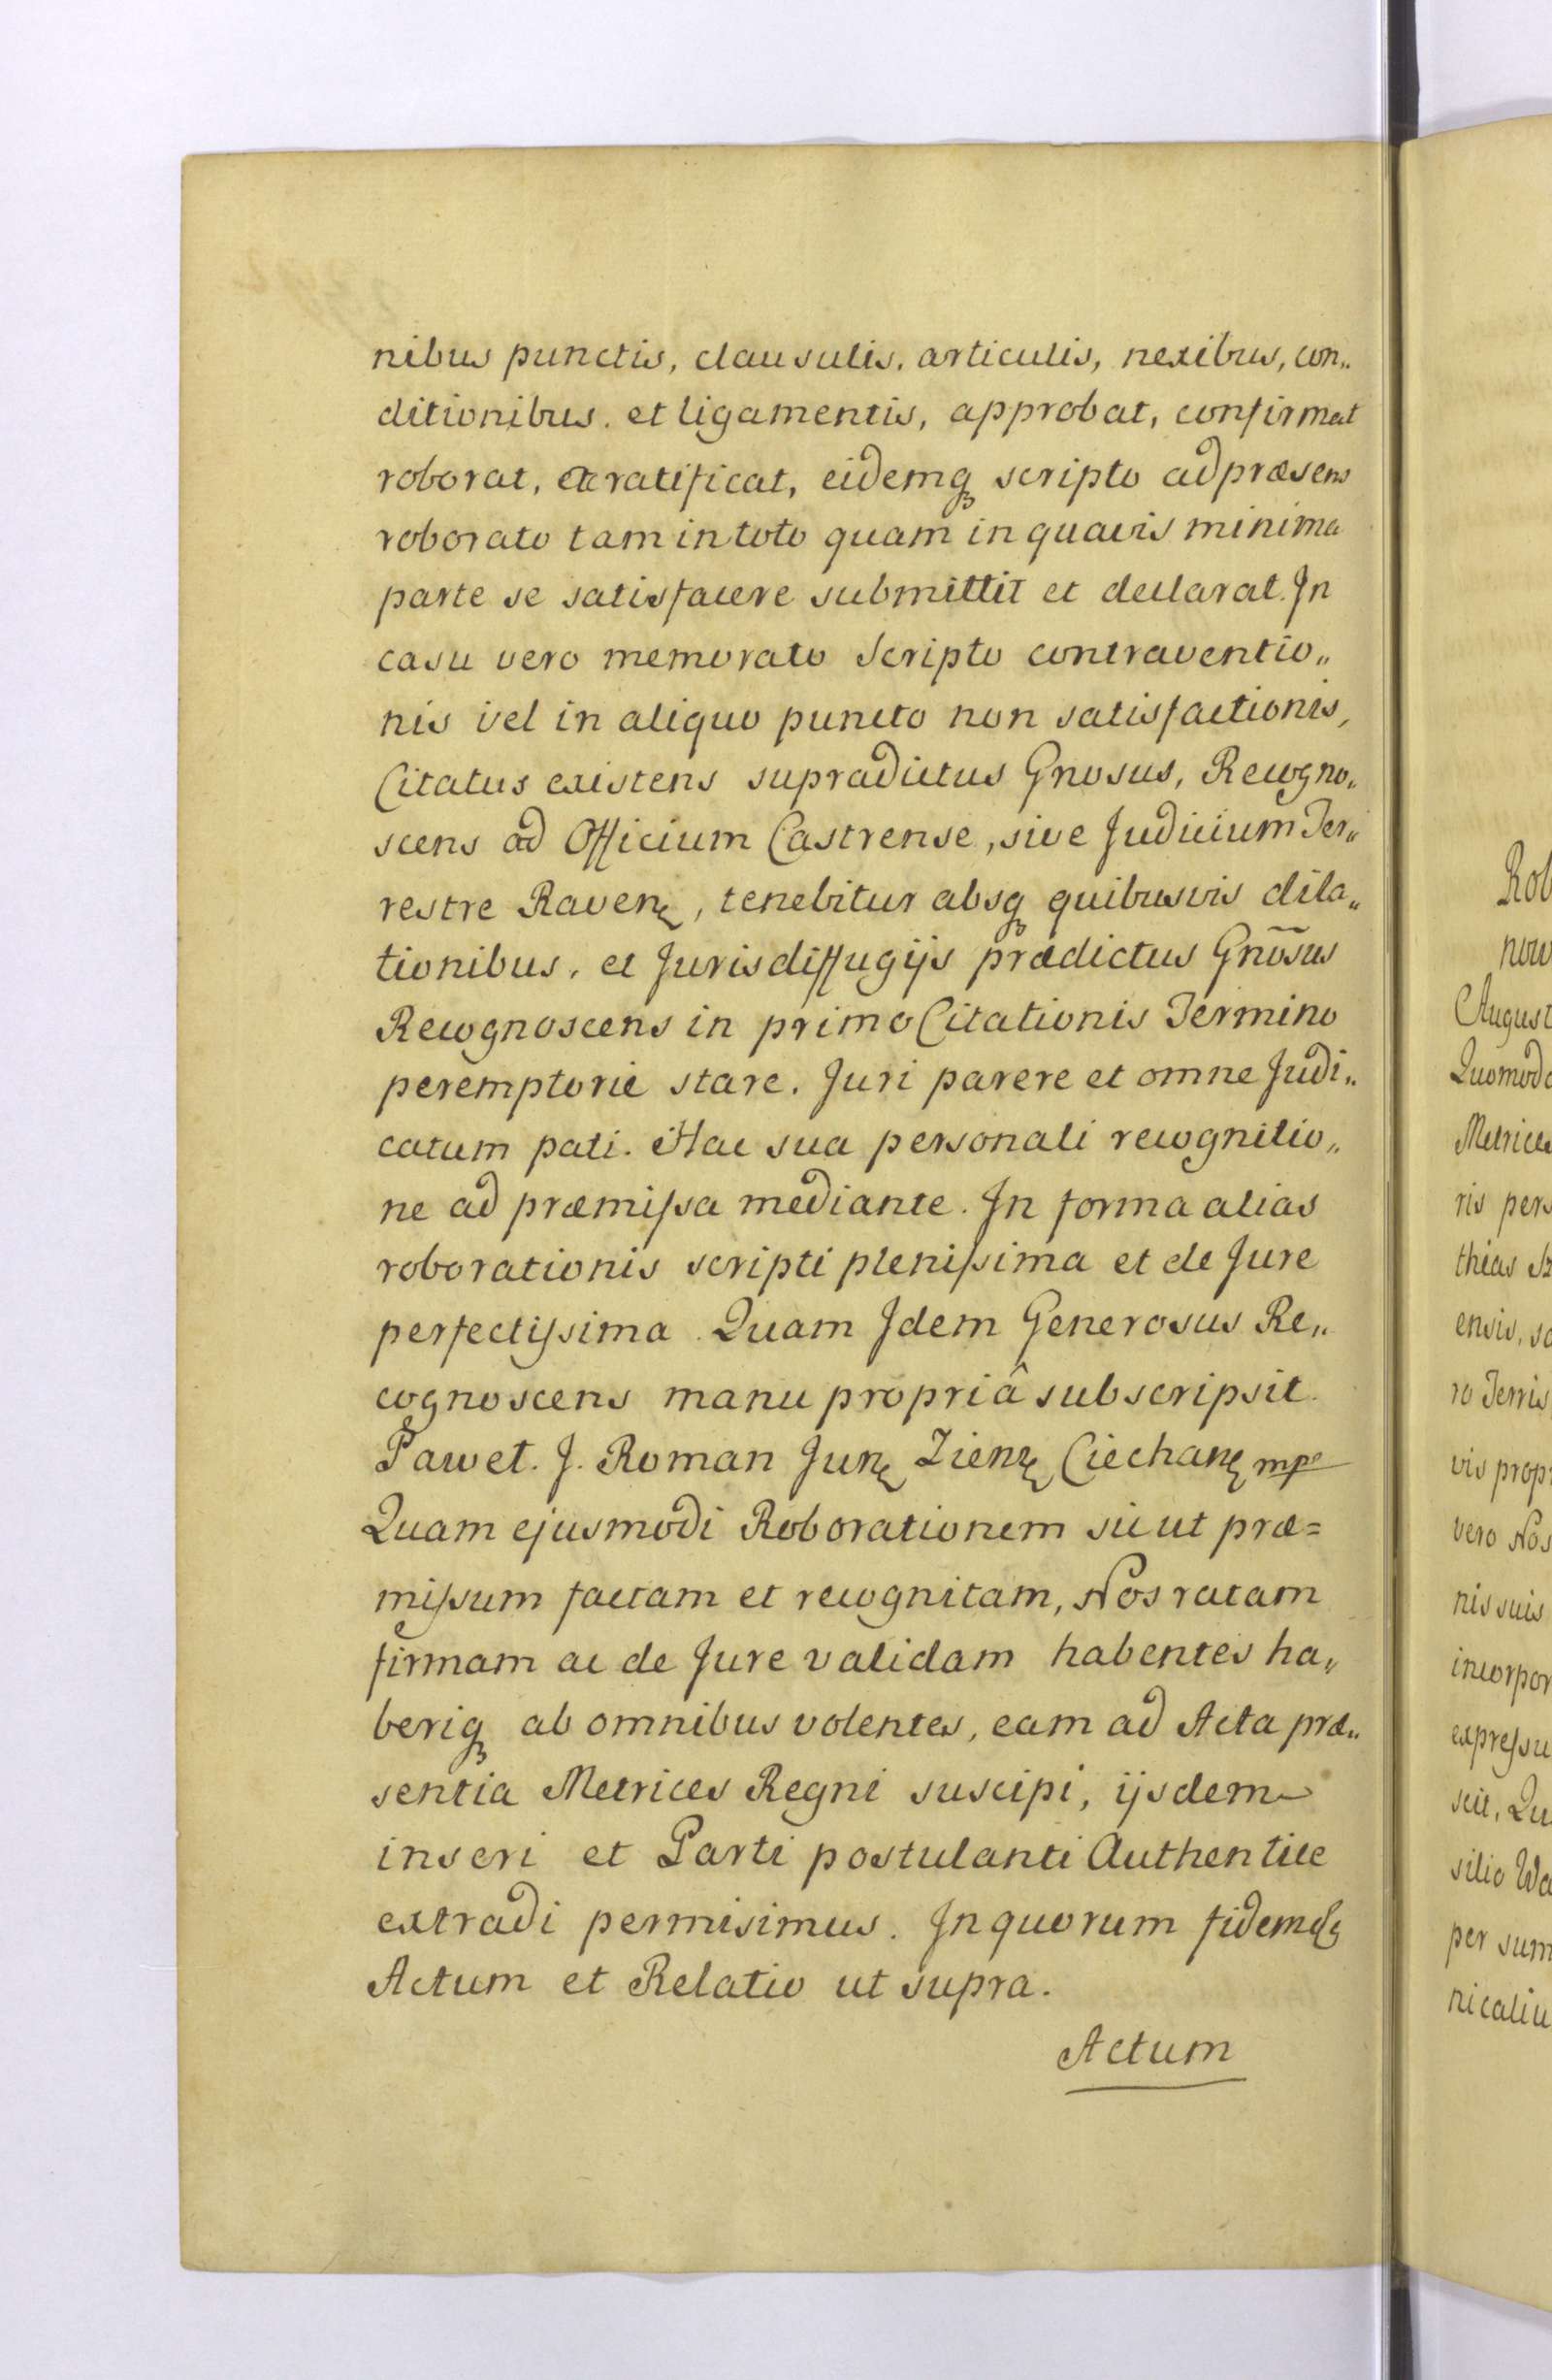 nibus punctis, clausulis, articulis, nexibus, con„
ditionibus. et ligamentis, approbat, confirmat
roborat, et ratificat, eidemq scripto ad præsens
roborato tam in toto quam in quavis minima
parte se satisfacere submittit et declarat. In
casu vero memorato Scripto contraventio„
nis vel in aliquo puncto non satisfactionis,
Citatus existens supradictus Gnosus, Recogno„
scens ad Officium Castrense, sive Judicium Ter„
restre Raven, tenebitur absq quibusvis dila„
tionibus, et Juris diffugijs prædictus Gnōsus
Recognoscens in primo Citationis Termino
peremptorie stare. Juri parere et omne Judi„
catum pati. Hac sua personali recognitio„
ne ad præmissa mediante. In forma alias
roborationis scripti plenissima et de Jure
perfectissima. Quam Idem Generosus Re„
cognoscens manu propriâ subscripsit.
Paweł. J. Roman Jun Zien Ciechan mpe
Quam ejusmodi Roborationem sicut præ=
missum factam et recognitam, Nos ratam
firmam ac de Jure validam habentes ha„
beriq ab omnibus volentes, eam ad Acta præ„
sentia Metrices Regni suscipi, ijsdem
inseri et Parti postulanti Authentice
extradi permisimus. In quorum fidem
Actum et Relatio ut supra.
Actum
Rob
now
August
Quomodo
Metrices
ris pers
thias
ensis, so
ro Terris
vis propr
vero Nos
nis suis
incorpor
expressu
scit, Qu
silio Wa
per sum
nicaliu